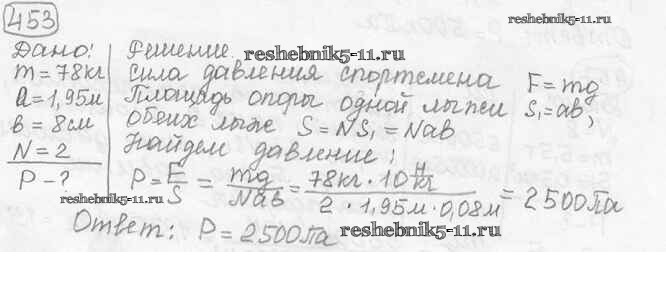 453
reshebnik5-11.ru
Дано:
m = 78кг
a = 1,95м
в = 8см
N = 2
P - ?
Решение
reshebnik5-11.ru
Сила давления спортсмена F = mg
Площадь опоры одной лыжи S₁ = ab,
обеих лыж S = NS₁ = Nab
Найдем давление:
P = F/S = mg/Nab = 78кг · 10 Н/кг / 2 · 1,95м · 0,08м = 2500Па
reshebnik5-11.ru
Ответ: P = 2500Па
reshebnik5-11.ru